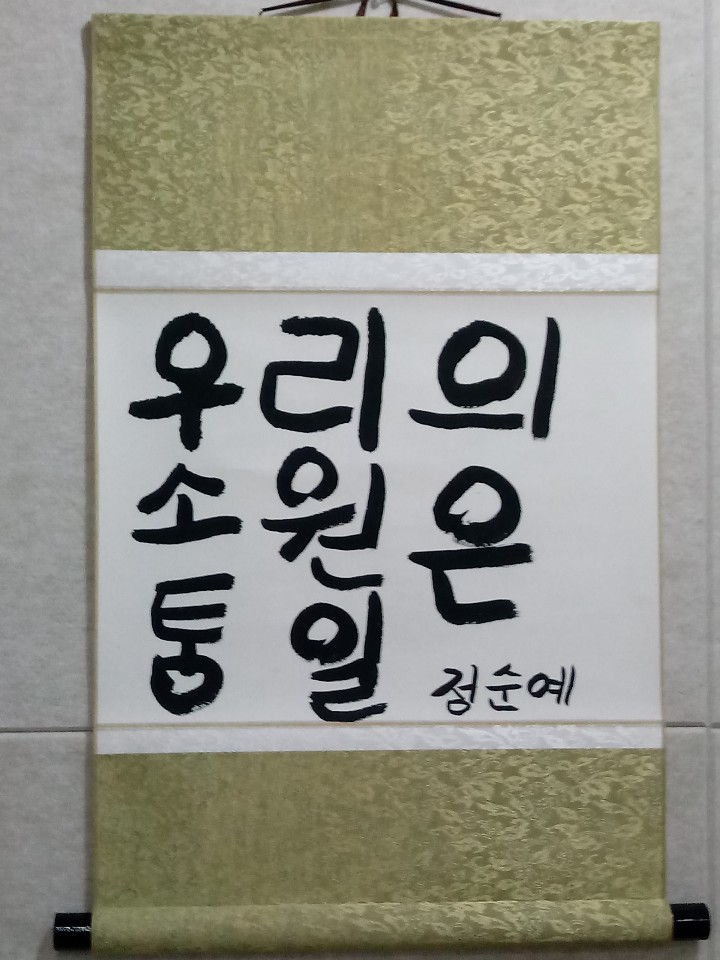 우리의
소원은
통일
정순예